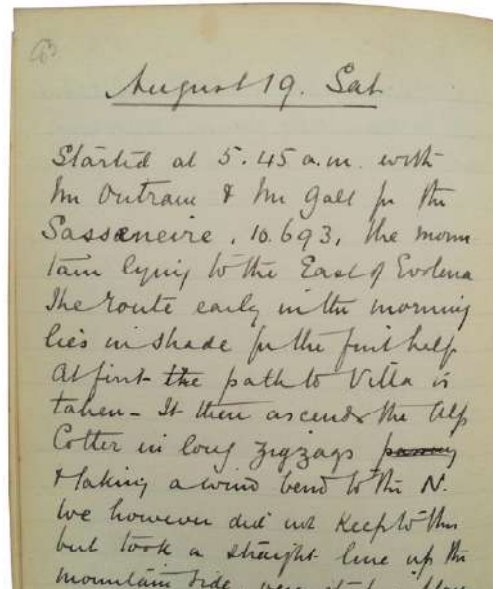 August 19. Sat
Started at 5.45 a.m. with
Mr Outram & Mr Gall for the
Sassaneire, 10.693, the moun
tain lying to the East of Evolena
The route early in the morning
lies in shade for the first half
At first the path to Villa is
taken - It then ascends the Alp
Cotter in long zigzags passing
& taking a wind bend to the N.
We however did not keep to this
but took a straight line up the
mountain side, very